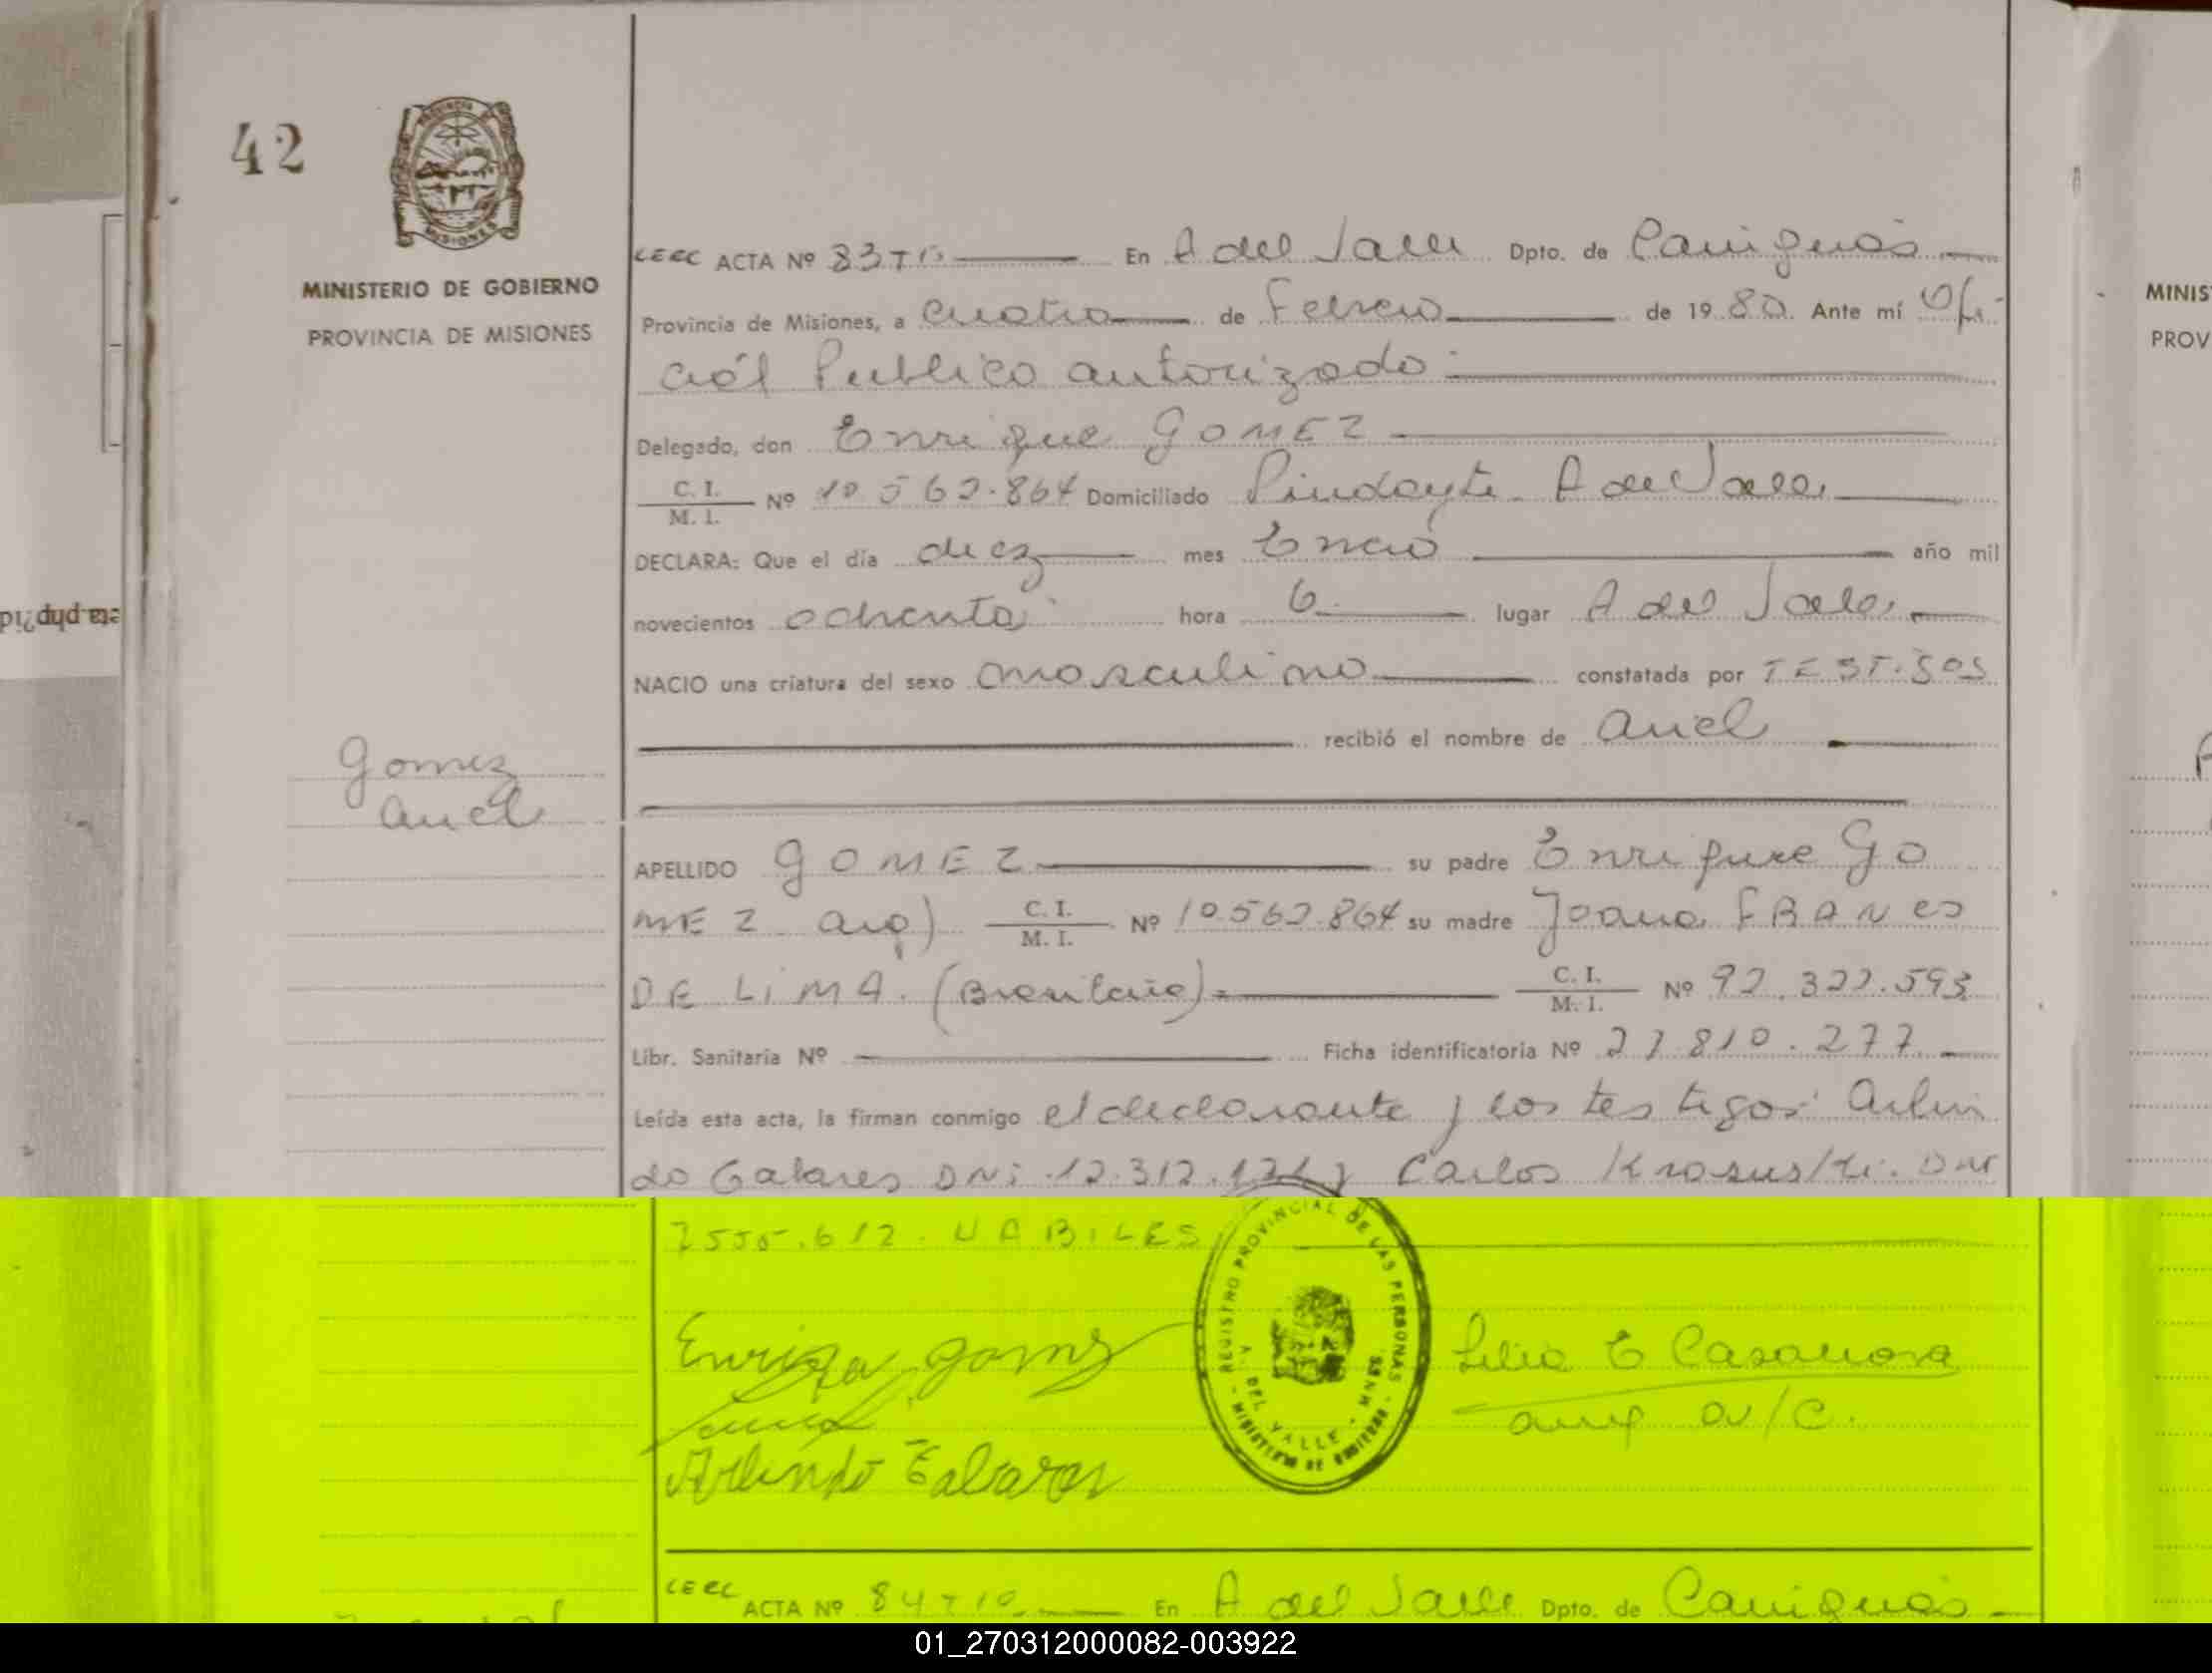 42
MINISTERIO DE GOBIERNO
PROVINCIA DE MISIONES
ACTA Nº 83 T Iº En A del Valle Dpto. de Cainguás
Provincia de Misiones, a cuatro de Febrero de 1980. Ante mí Ofi-
cial Publico autorizado
Delegado, don Enrique GOMEZ
C. I.
M. I. Nº 10.562.864 Domiciliado Pindayti A del Valle
DECLARA: Que el día diez mes Enero año mil
novecientos ochenta hora 6 lugar A del Valle
NACIO una criatura del sexo masculino constatada por TESTIGOS
recibió el nombre de Ariel
Gomez
Ariel
APELLIDO GOMEZ su padre Enrique GO
MEZ arg) C. I.
M. I. Nº 10.562.864 su madre Joana
DE LIMA. (Brasilera) C. I.
M. I. Nº 92.322.593
Libr. Sanitaria Nº Ficha identificatoria Nº 27.810.277
Leída esta acta, la firman conmigo el declarante y los testigos Arlin
do DNi 12.312. Carlos DNI
7555.612. HABILES
Enrique Gomez
Arlindo
REGISTRO PROVINCIAL DE LAS PERSONAS
A. DEL VALLE - MNES.
MINISTERIO DE GOBIERNO
Lilia E Casanova
ACTA Nº 84 T Iº En A del Valle Dpto. de Cainguás
MINIS
PROV
eta.php?id
01_270312000082-003922